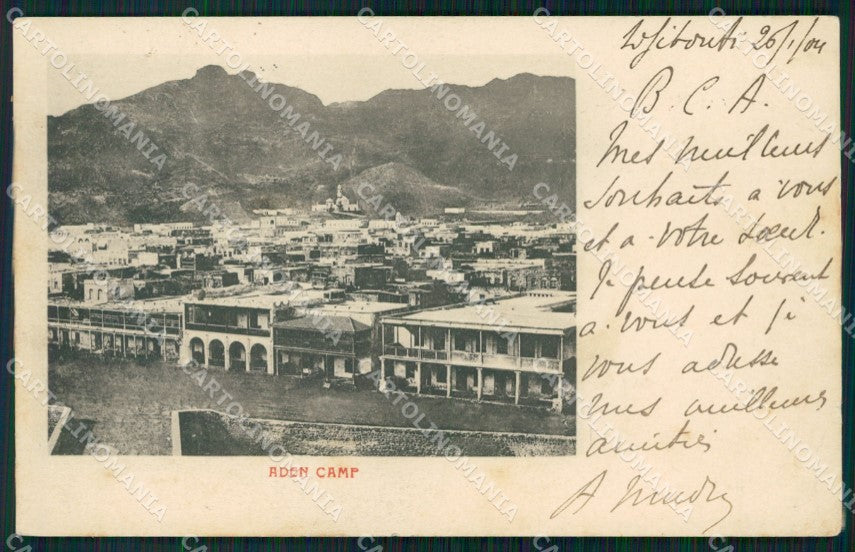 Djibouti 26/1/04
B. C. A.
Mes meilleurs
souhaits a vous
et a votre soeur.
Je pense souvent
a vous et je
vous adresse
mes meilleures
amitiés
A
ADEN CAMP
CARTOLINOMANIA